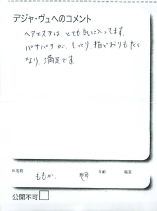 デジャ・ヴュへのコメント
ヘアエステは とても気に入ってます。
パサパサが、しっとり 指どおりもよく
なり、満足です
お名前
年齢
職業
ももか
公開不可